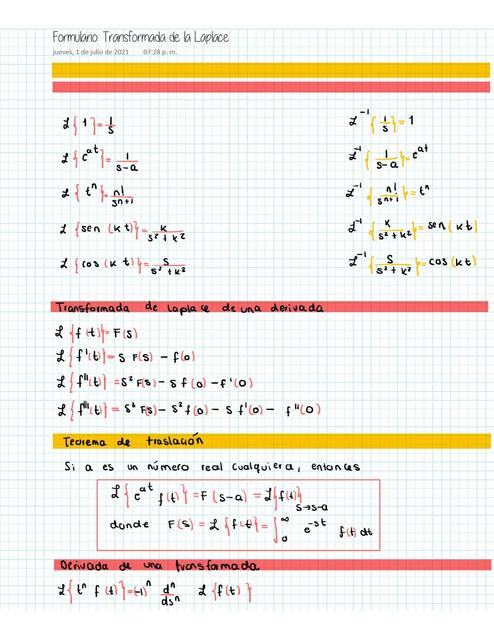 Formulario: Transformada de la Laplace
jueves, 1 de julio de 2021 07:28 p. m.
ℒ{1} = 1/s
ℒ⁻¹{1/s} = 1
ℒ{e^at} = 1/(s-a)
ℒ⁻¹{1/(s-a)} = e^at
ℒ{t^n} = n!/s^(n+1)
ℒ⁻¹{n!/s^(n+1)} = t^n
ℒ{sen (kt)} = k/(s²+k²)
ℒ⁻¹{k/(s²+k²)} = sen (kt)
ℒ{cos (kt)} = s/(s²+k²)
ℒ⁻¹{s/(s²+k²)} = cos (kt)
Transformada de laplace de una derivada
ℒ{f(t)} = F(s)
ℒ{f'(t)} = s F(s) - f(0)
ℒ{f''(t)} = s² F(s) - s f(0) - f'(0)
ℒ{f'''(t)} = s³ F(s) - s² f(0) - s f'(0) - f''(0)
Teorema de traslación
Si a es un número real cualquiera, entonces
ℒ{e^at f(t)} = F(s-a) = ℒ{f(t)} s→s-a
donde F(s) = ℒ{f(t)} = ∫₀^∞ e^-st f(t) dt
Derivada de una transformada
ℒ{t^n f(t)} = (-1)^n d^n/ds^n ℒ{f(t)}